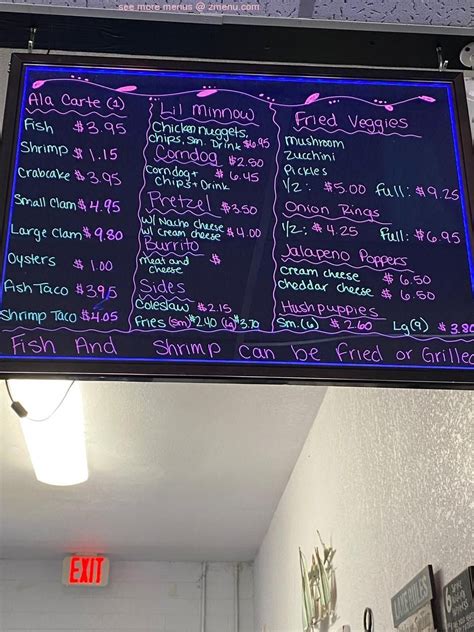 see more menus @ zmenu.com
Ala Carte (1)
Fish $3.95
Shrimp $1.15
Crabcake $3.95
Small Clam $4.95
Large Clam $9.80
Oysters $1.00
Fish Taco $3.95
Shrimp Taco $4.05
Lil Minnow
Chicken nuggets,
Chips, Sm. Drink $6.95
Corndog $2.50
Corndog + $6.45
Chips + Drink
Pretzel $3.50
w/ Nacho cheese
w/ Cream cheese $4.00
Burrito
meat and $
cheese
Sides
Coleslaw $2.15
Fries (sm) $2.40 (Lg) $3.70
Fried Veggies
mushroom
Zucchini
Pickles
1/2: $5.00 Full: $9.25
Onion Rings
1/2: $4.25 Full: $6.95
Jalapeno Poppers
Cream cheese $6.50
Cheddar cheese $6.50
Hushpuppies
Sm. (6) $2.60 Lg (9) $3.80
Fish And Shrimp can be Fried or Grilled
EXIT
LAKE RULES